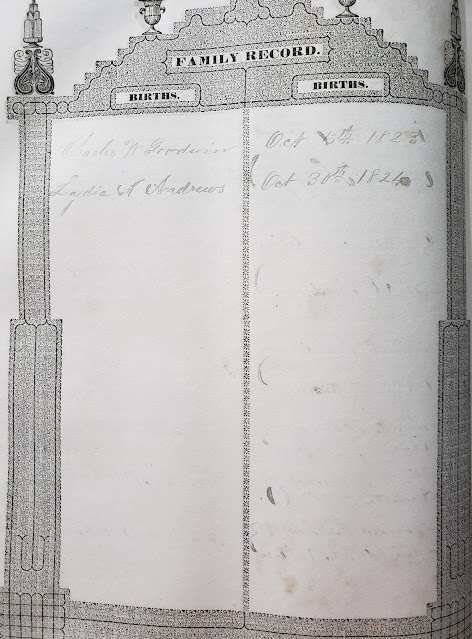 FAMILY RECORD.
BIRTHS. BIRTHS.
Charles W Goodwin Oct 5th 1823
Lydia A Andrews Oct 30th 1824